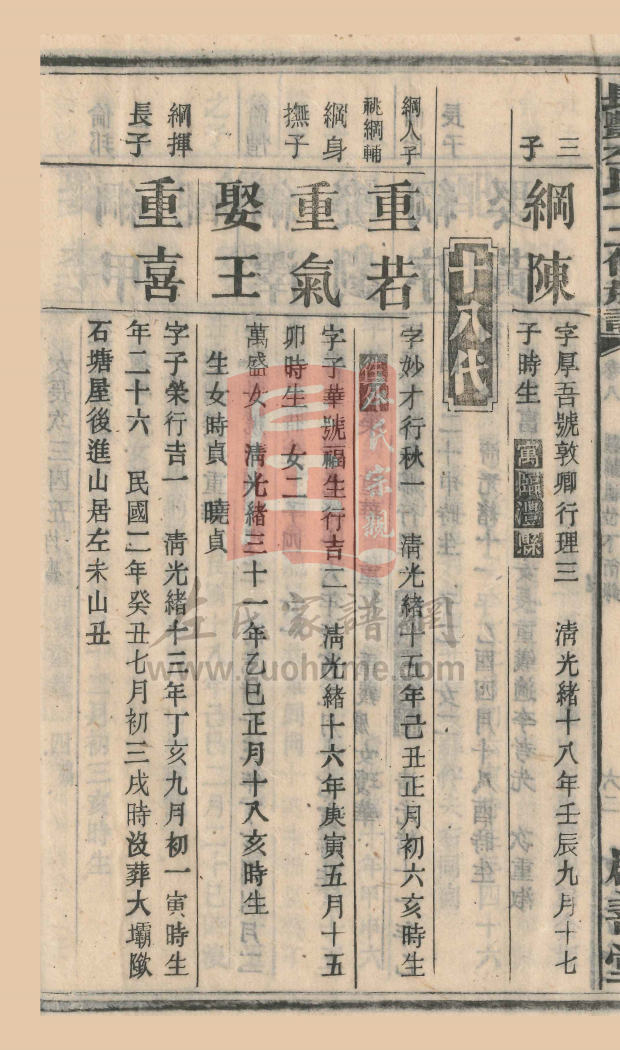 三
子
綱陳
字厚吾號敦卿行理三 清光緒十八年壬辰九月十七
子時生 寓臨澧縣
十八代
綱人子
祧綱輔
重若
字妙才行秋一 清光緒十五年己丑正月初六亥時生
住外
綱身
撫子
重氣
字子華號福生行吉二 清光緒十六年庚寅五月十五
卯時生 女二
娶王
萬盛女 清光緒三十一年乙巳正月十八亥時生
生女時貞 曉貞
綱揮
長子
重喜
字子榮行吉一 清光緒十三年丁亥九月初一寅時生
年二十六 民國二年癸丑七月初三戌時沒葬大壩
石塘屋後進山居左未山丑
左氏家譜網
www.zuohome.com